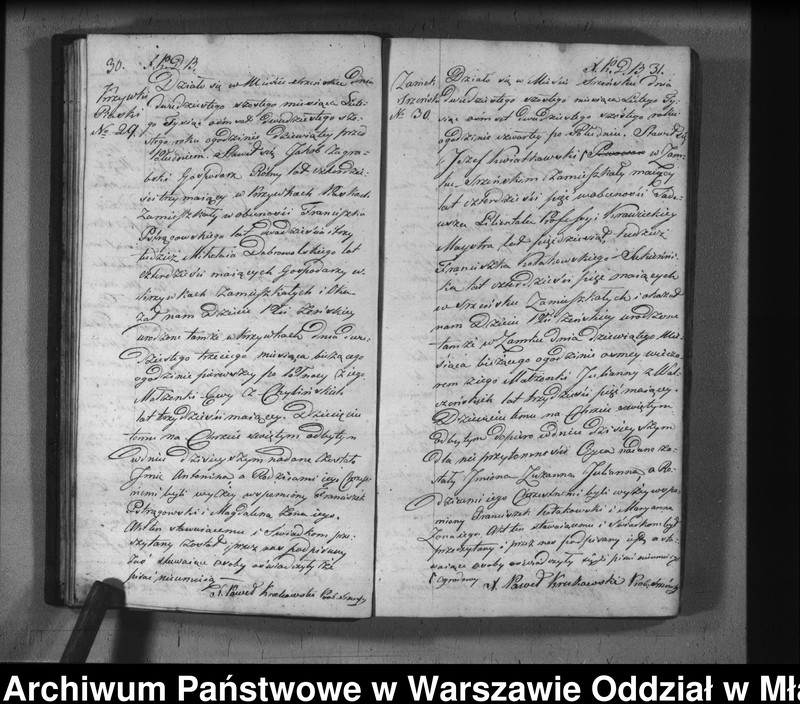 30.
Krzywki
Piaski
№ 29.
Działo się w Mieście Szreńsku dnia
dwudziestego szóstego miesiąca Lute-
go Tysiąc ośmset dwudziestego szó-
stego roku ogodzinie dziewiątej przed
Południem. Stawił się Jakob Zagra-
bski Gospodarz Rolny lat czterdzie-
ści trzy maiący w Krzywkach Piaskach
Zamieszkały w obecności Franciszka
Piotrągowskiego lat dwadzieścia trzy
tudzież Mikołaia Dąbrowskiego lat
czterdzieści maiących Gospodarzy w
Krzywkach Zamieszkałych i Oka-
zał nam Dziecie Płci Żeńskiej
urodzone tamże w Krzywkach dnia dwu-
dziestego trzeciego miesiąca bieżącego
ogodzinie pierwszej po Północy z iego
Małżonki Ewy z
lat trzydzieści maiącey. Dziecięciu
temu na Chrzcie świętym odbytym
w dniu dzisieyszym nadane zostało
Imie Antonina a Rodzicami iego Chrzest-
nemi byli wyżey wspomniony Franciszek
i Magdalena Żona iego.
Akt ten stawaiącemu i Świadkom prze-
czytany został przez nas podpisany
Gdyż stawaiące osoby oświadczyły iż
pisać nieumieią
X. Paweł Krukowski
31.
Zamek
Szreńsk
№ 30
Działo się w Mieście Szreńsku dnia
dwudziestego szóstego miesiąca Lutego Ty-
siąc ośmset dwudziestego szóstego roku
ogodzinie czwartej po Południu. Stawił się
Jozef Kwiatkowski w Zam-
ku Szreńskim Zamieszkały maiący
lat czterdzieści pięć w obecności Tade-
usza Lilientala Professyi Krawieckiej
Maystra lat pięćdziesiąt tudzież
Franciszka Kołakowskiego Sukienni-
ka lat czterdzieści pięć maiących
w Szreńsku Zamieszkałych i okazał
nam Dziecie Płci Żeńskiey urodzone
tamże w Zamku dnia dziewiątego Mie-
siąca bieżącego ogodzinie osmey wieczo-
rem z iego Małżonki Julianny z
lat trzydzieści pięć maiącey.
Dziecięciu temu na Chrzcie świętym
odbytym dopiero w dniu dzisieyszym
dla nieprzytomności Oyca nadane zo-
stały Imiona Zuzanna Julianna, a Ro-
dzicami iego Chrzestnemi byli wyżey wspo-
mniony Franciszek Kołakowski i Maryanna
Żona iego. Akt ten stawaiącemu i Świadkom był
przeczytany i przez nas podpisany gdyż sta-
waiące osoby oświadczyły iż pisać nieumieią
Ogrodowy
X. Paweł Krukowski
Archiwum Państwowe w Warszawie Oddział w Mła